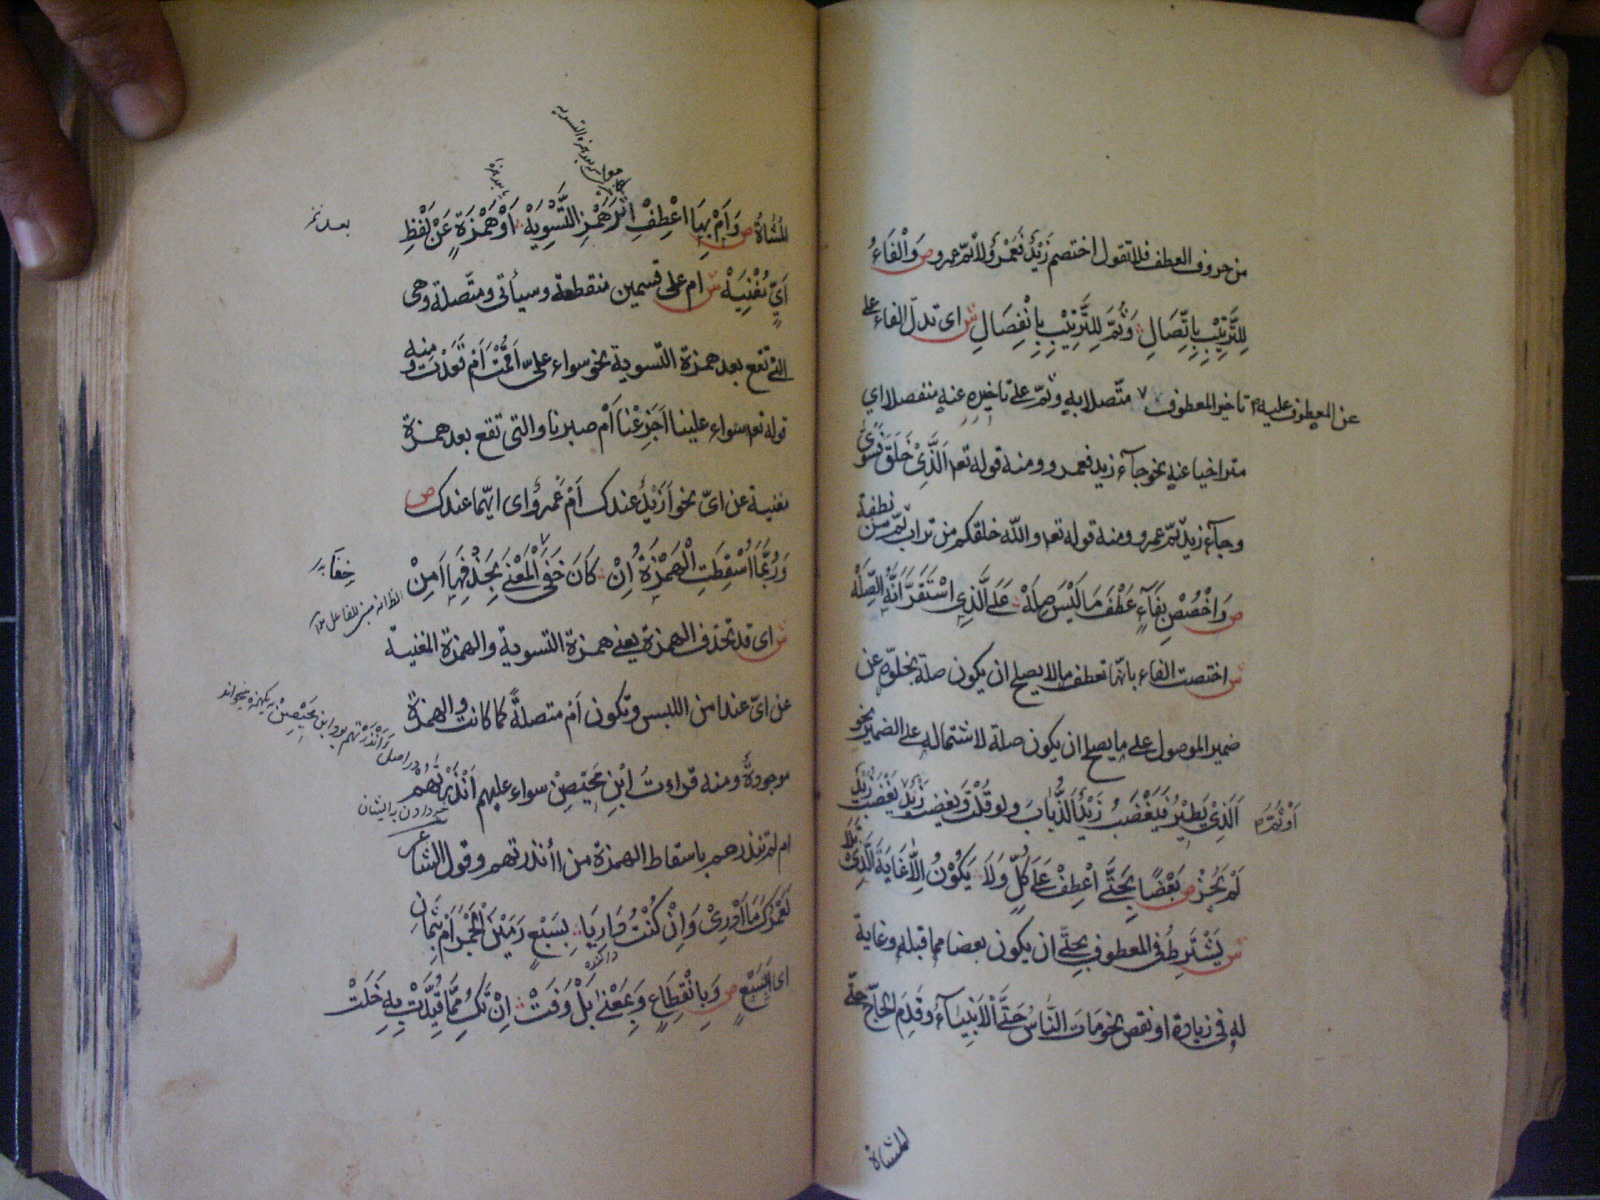 من حروف العطف فلا تقول اختصم زَيْدٌ فَعَمْرٌ ولا ثُمّ عمرو ص وَالْفَاءُ
لِلتَّرْتِيْبِ بِاِتِّصَالِ وَثُمَّ لِلتَّرْتِيْبِ بِاِنْفِصَالِ ش اى تدلّ الفاء على
تاخير المعطوف عن المعطوف عليه متّصلا به وثُمّ على تاخيره عنه منفصلا اي
متراخيا عنه نحو جآء زيد فعمرو ومنه قوله تعه اَلَّذِىْ خَلَقَ فَسَوّٰى
وجآء زيد ثمّ عمرو ومنه قوله تعه والله خلقكم من تراب ثمّ من نطفة
ص وَاخْصُصْ بِفَآءٍ عَطْفَ مَا لَيْسَ صِلَهْ عَلَى الَّذِى اسْتَقَرَّ اَنَّهُ الصِّلَهْ
ش اختصت الفاء بانّها تعطف ما لا يصلح ان يكون صلة بخلوّه عن
ضمير الموصول على ما يصلح ان يكون صلة لاشتماله على الضمير نحو
اَلَّذِىْ يَطِيْرُ فَيَغْضَبُ زَيْدٌ الذُّبَابُ ولو قُلْتَ وَيَغضبُ زَيْدٌ
اَوْ ثُمَّ يَغْضَبُ زَيْدٌ
لَمْ يَجُزْ ص بَعْضًا بِحَتّٰى اعْطِفْ عَلٰى كُلٍّ وَلَا يَكُوْنُ اِلَّا غَايَةَ الَّذِىْ تَلَا
ش يَشْتَرِطُ فى المعطوف بحتّى ان يكون بعضا مما قبله وغاية
له فى زيادة او نقص نحو مَاتَ النَّاسُ حَتَّى الْاَنْبِيَآءُ وَقَدِمَ الحاجّ حتّى
المشاة
المُشَاةُ ص وَاَمْ بِهَا اعْطِفْ اِثْرَ هَمْزِ التَّسْوِيَهْ اَوْ هَمْزَةٍ عَنْ لَفْظِ
اَيٍّ مُغْنِيَهْ ش ام على قسمين منقطعة وسيأتى ومتّصلة وهى
التى تقع بعد همزة التسوية نحو سواء علىّ اَقُمْتَ اَمْ قَعَدْتَ ومنه
قوله تعه سواء علينا اَجَزِعْنَا اَمْ صبرنا والتى تقع بعد همزة
مغنية عن اىّ نحو اَزَيْدٌ عندك اَمْ عَمرٌو اى ايّهما عندك ص
وَرُبَّمَا اُسْقِطَتِ الْهَمْزَةُ اِنْ كَانَ خَفَى الْمَعْنٰى بِحَذْفِهَا اَمِنْ
ش اى قد تحذف الهمزة يعنى همزة التسوية والهمزة المغنية
عن اىّ عند امن اللبس وتكون اَمْ متصلةً كما كانت والهمزة
موجودةٌ ومنه قراءتُ ابْنِ مُحَيْصِنْ سواء عليهم اَنْذَرْتَهُمْ
ام لم تنذرهم باسقاط الهمزة من اأنذرتهم وقول الشاعر
لَعَمْرُكَ مَا اَدْرِىْ وَاِنْ كُنْتُ دَارِيًا بِسَبْعٍ رَمَيْنَ الْجَمْرَ اَمْ بِثَمَانِ
اى اَبِسَبْعٍ ص وَبِانْقِطَاعٍ وَبِمَعْنٰى بَلْ وَفَتْ اِنْ تَكُ مِمَّا قُيِّدَتْ بِهِ خَلَتْ